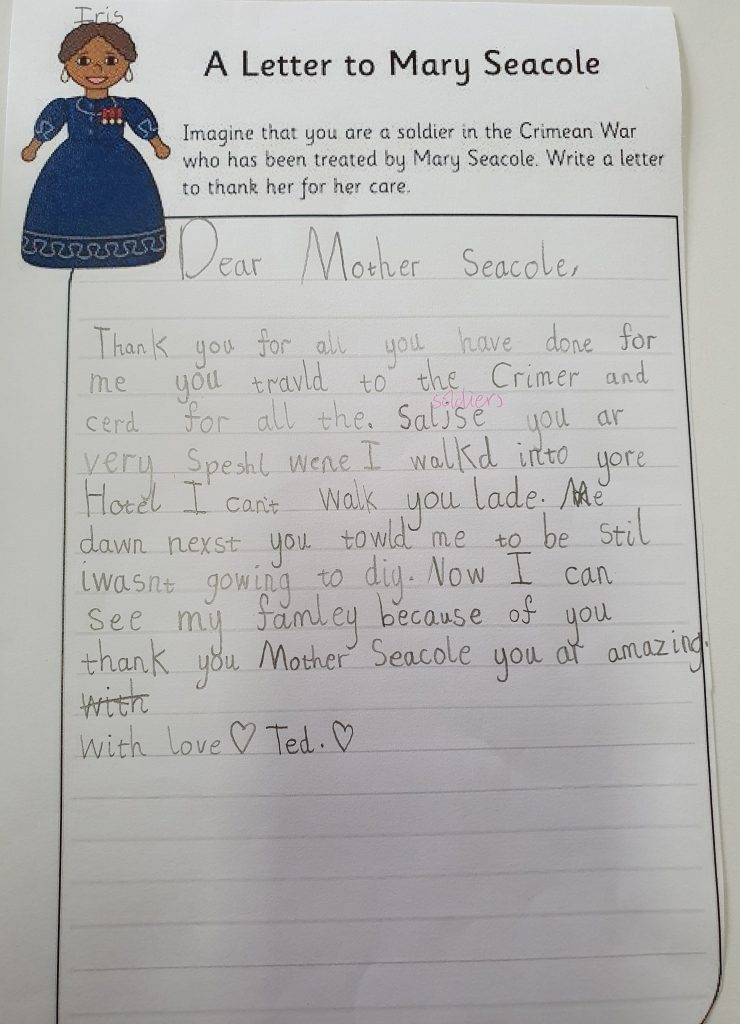 Iris
A Letter to Mary Seacole
Imagine that you are a soldier in the Crimean War
who has been treated by Mary Seacole. Write a letter
to thank her for her care.
Dear Mother Seacole,
Thank you for all you have done for
me you travld to the Crimer and
soldiers
cerd for all the. Saljse you ar
very Speshl wene I walkd into yore
Hotel I can't Walk you lade. Me
dawn nexst you towld me to be stil
iwasnt gowing to diy. Now I can
see my famley because of you
thank you Mother Seacole you ar amazing.
with
With love ♡ Ted. ♡